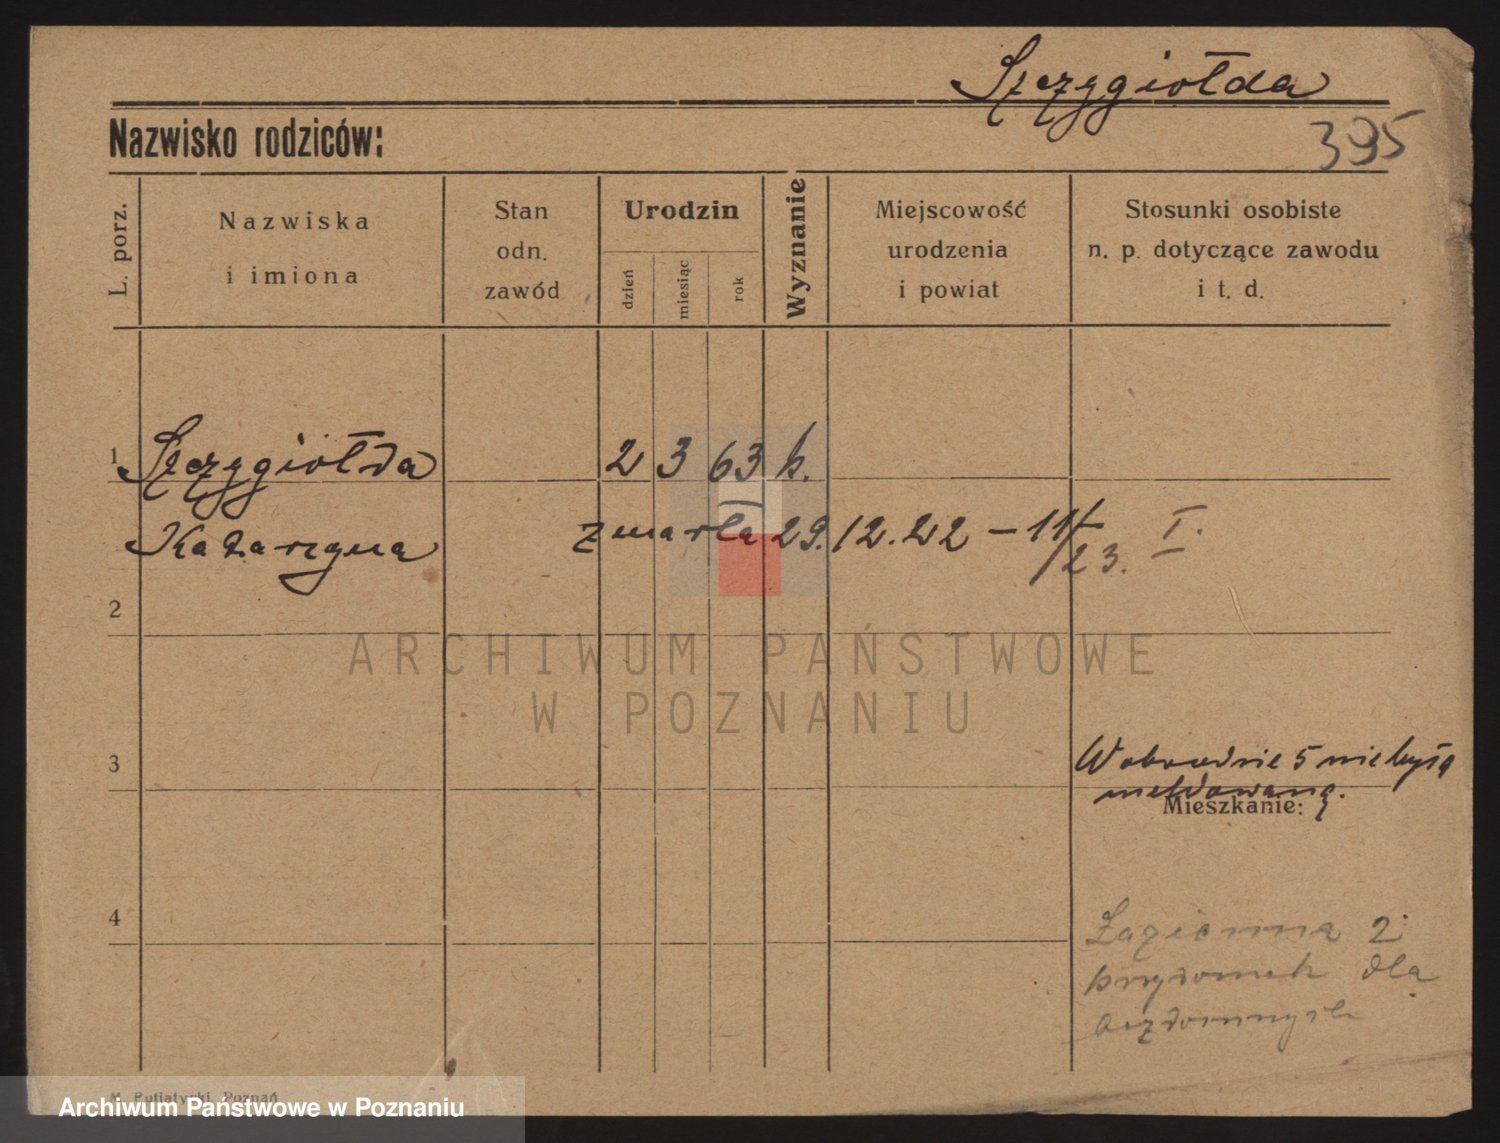 Szczygiołda
Nazwisko rodziców:
395
L. porz.
Nazwiska
i imiona
Stan
odn.
zawód
Urodzin
dzień
miesiąc
rok
Wyznanie
Miejscowość
urodzenia
i powiat
Stosunki osobiste
n. p. dotyczące zawodu
i t. d.
1 Szczygiołda 2 3 63 k.
Katarzyna zmarła 29.12.22 - 11/I 23. I.
2
ARCHIWUM PAŃSTWOWE
W POZNANIU
3
W obwodzie 5 nie była
meldowaną.
Mieszkanie:
4
Łazienna 2
przytułek dla
bezdomnych
Archiwum Państwowe w Poznaniu